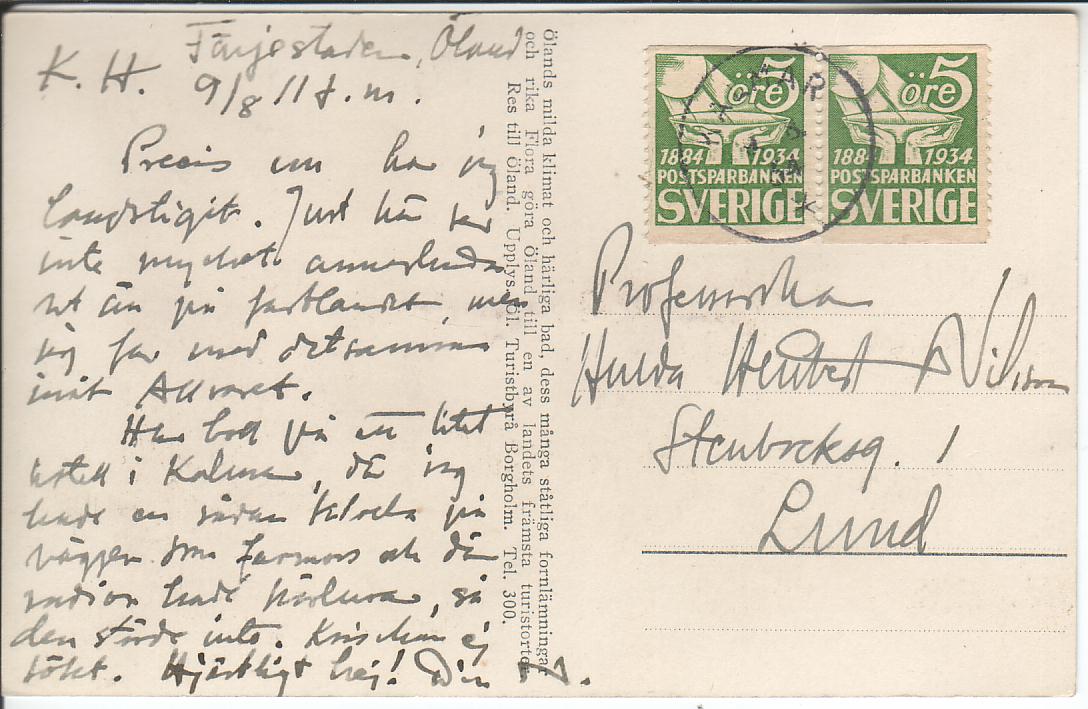 Färjestaden, Öland
K. H. 9/8 11 f. m.
Precis nu har jag
landstigit. Just här är
inte mycket annorlunda
än på fastlandet, men
jag far med detsamma
inåt Allvaret.
Har bott på ett litet
hotell i Kalmar, där jag
hade en sådan klocka på
väggen som farmors och där
radion hade hörlurar, så
den störde inte. Kruschan ej
sökt. Hjärtligt hej! Din N.
Ölands milda klimat och härliga bad, dess många ståtliga fornlämningar
och rika Flora göra Öland till en av landets främsta turistorter
Res till Öland. Upplys. Öl. Turistbyrå Borgholm. Tel. 300.
öre 5
1884 1934
POSTSPARBANKEN
SVERIGE
öre 5
1884 1934
POSTSPARBANKEN
SVERIGE
KALMAR
Professorskan
Hulda Nilsson
Stenbocksg. 1
Lund